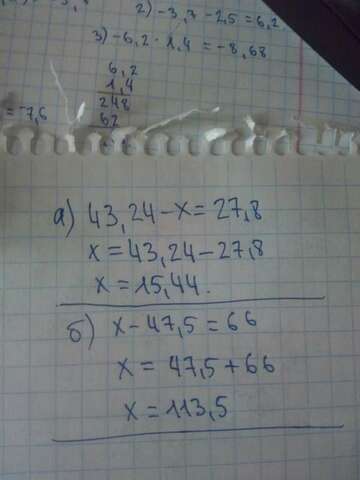 2) -3,3 - 2,5 = 6,2
3) -6,2 · 1,4 = -8,68
6,2
1,4
248
= -7,6
62
а) 43,24 - x = 27,8
x = 43,24 - 27,8
x = 15,44.
б) x - 47,5 = 66
x = 47,5 + 66
x = 113,5